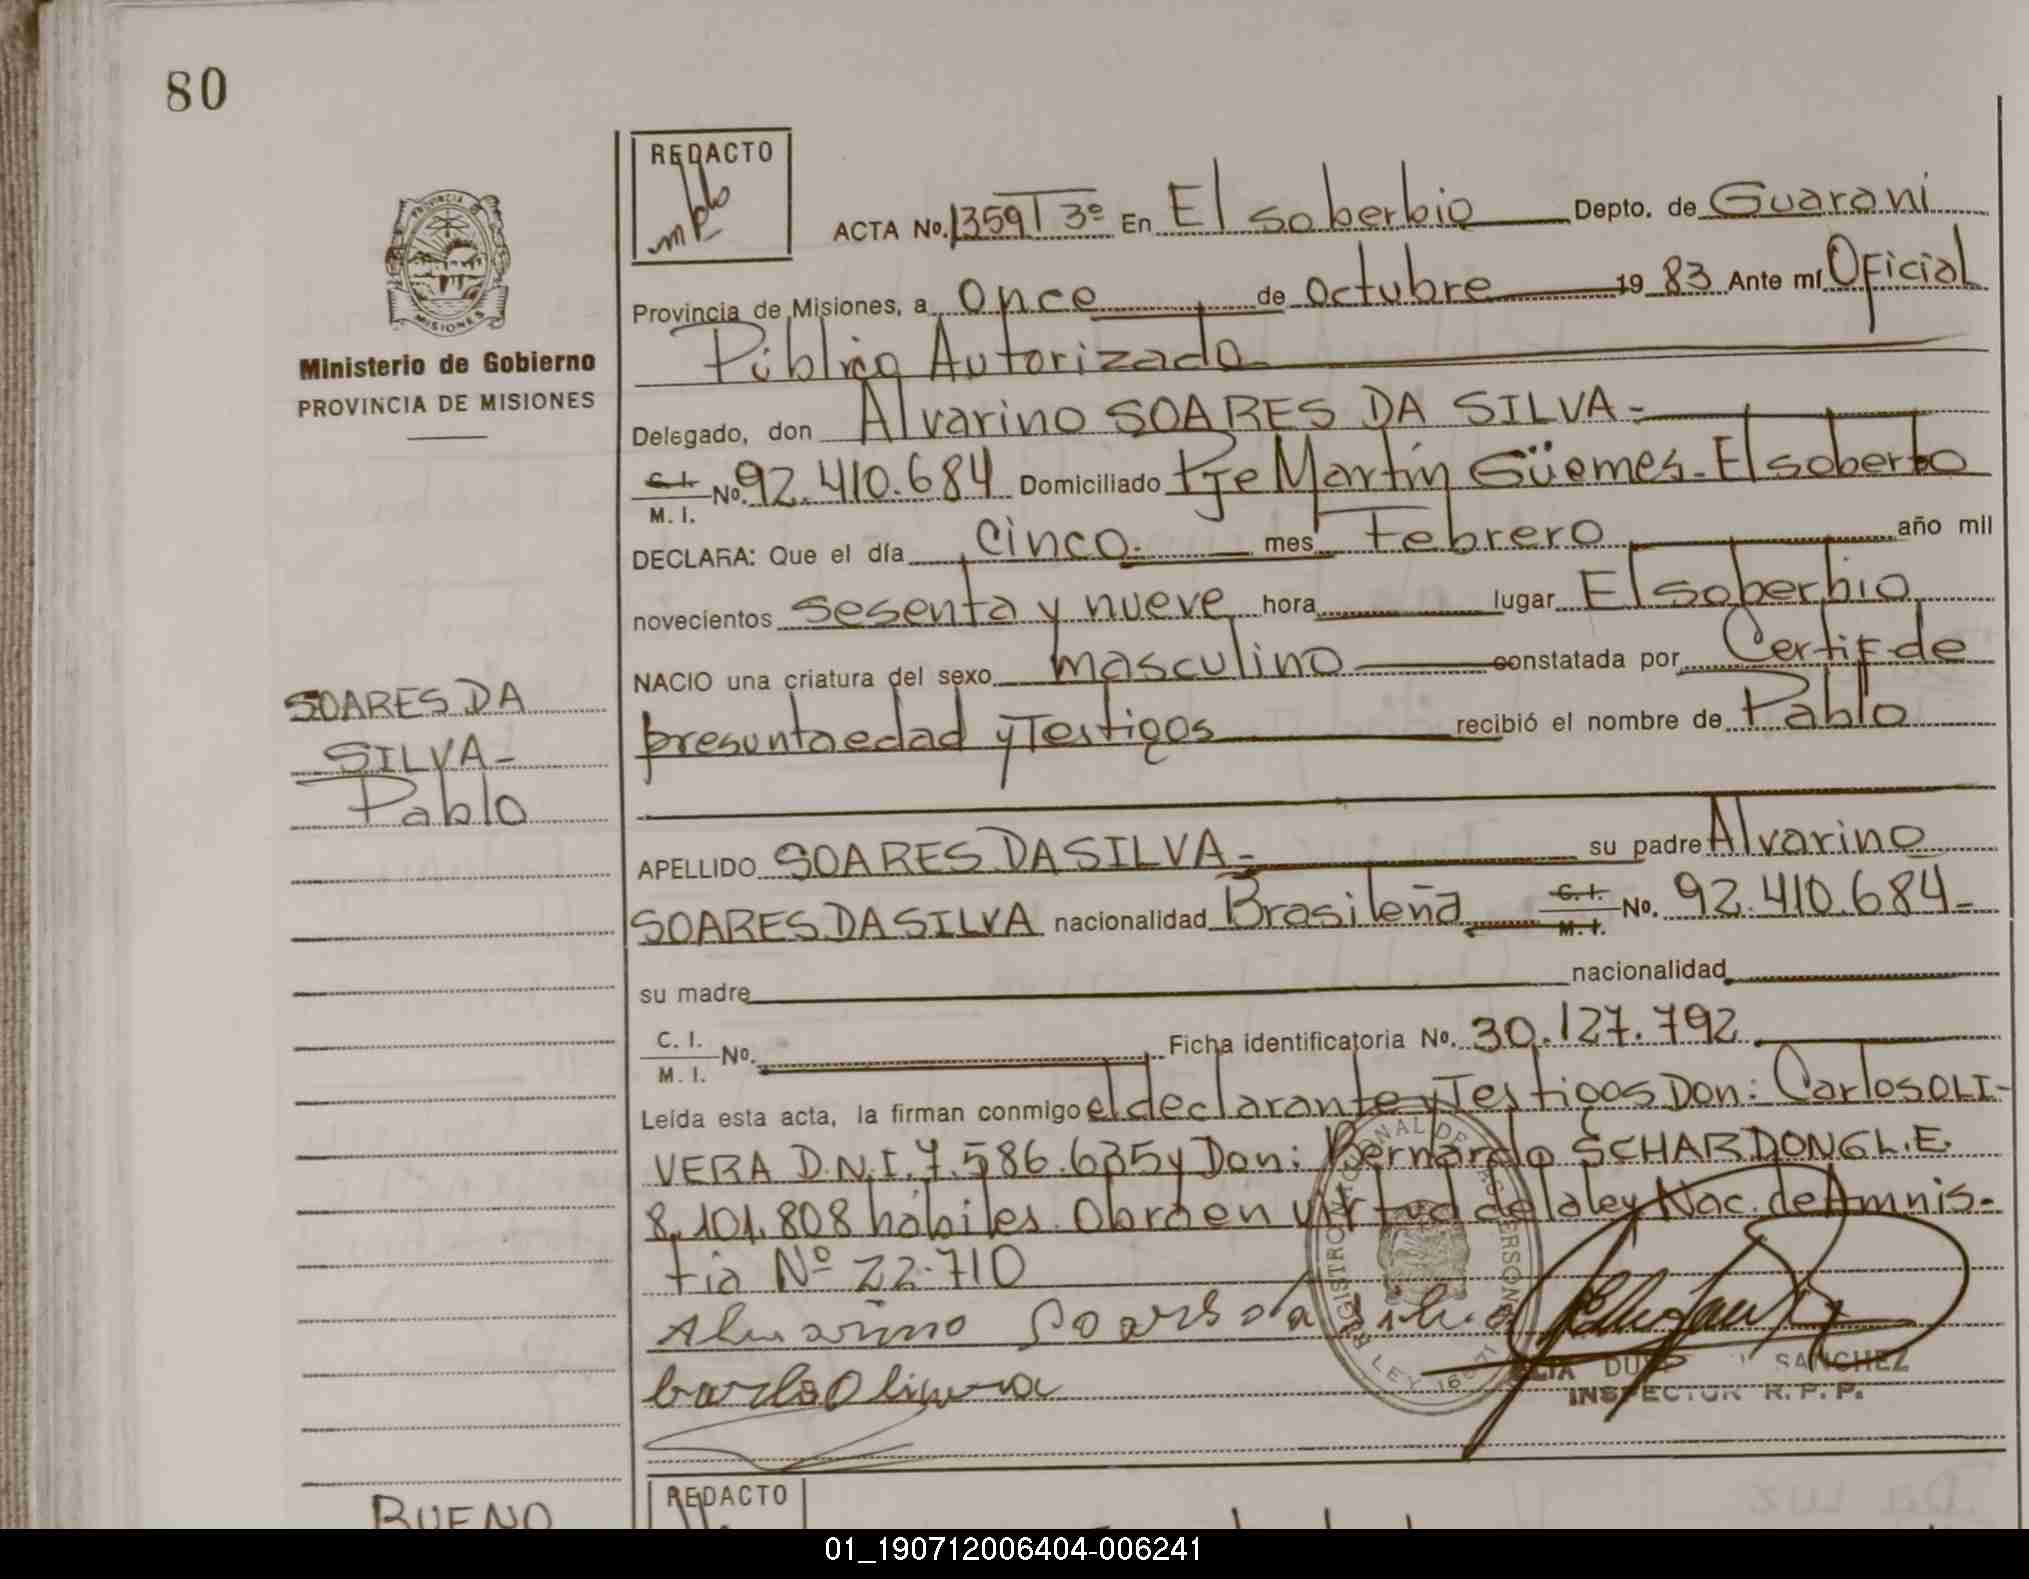 80
REDACTO
PROVINCIA DE
MISIONES
Ministerio de Gobierno
PROVINCIA DE MISIONES
SOARES DA
SILVA-
Pablo
ACTA No. 1359 T 3º En El soberbio Depto. de Guarani
Provincia de Misiones, a Once de Octubre 19 83 Ante mí Oficial
Público Autorizado
Delegado, don Alvarino SOARES DA SILVA-
C. I. / M. I. No. 92.410.684 Domiciliado Pje Martín Güemes-El soberbio
DECLARA: Que el día cinco- mes Febrero año mil
novecientos sesenta y nueve hora lugar El soberbio
NACIO una criatura del sexo masculino constatada por Certif de
presunta edad y Testigos recibió el nombre de Pablo
APELLIDO SOARES DA SILVA- su padre Alvarino
SOARES DA SILVA nacionalidad Brasileña C. I. / M. I. No. 92.410.684-
su madre nacionalidad
C. I. / M. I. No. Ficha identificatoria No. 30.127.792
Leída esta acta, la firman conmigo el declarante y Testigos Don: Carlos OLI-
VERA D.N.I. 7.586.635 y Don: Bernardo SCHARDONG L.E.
8.101.808 hábiles. Obra en virtud de la ley Nac. de Amnis-
tia Nº 22.710
Alvarino Soares da Silva
Carlos Olivera
SANCHEZ
INSPECTOR R. P. P.
BUENO
REDACTO
01_190712006404-006241